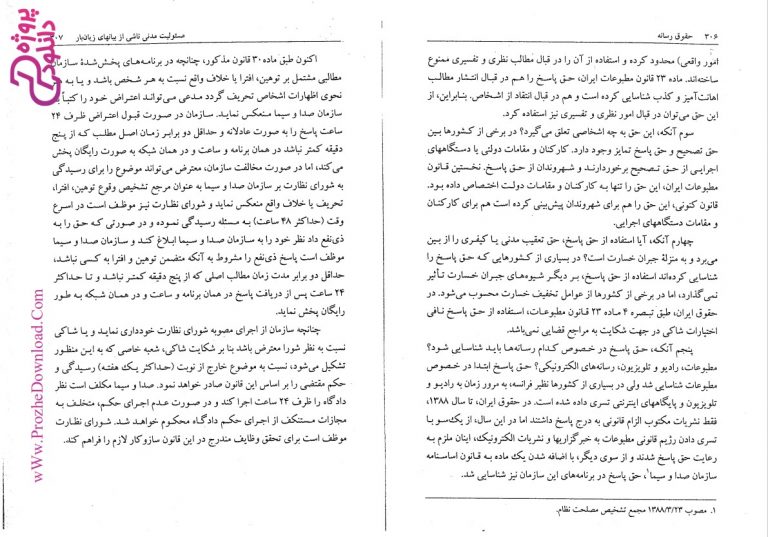 ۳۰۶ حقوق رسانه
امور واقعی) محدود کرده و استفاده از آن را در قبال مطالب نظری و تفسیری ممنوع
ساخته‌اند. ماده ۲۳ قانون مطبوعات ایران، حق پاسخ را هم در قبال انتشار مطالب
اهانت‌آمیز و کذب شناسایی کرده است و هم در قبال انتقاد از اشخاص. بنابراین، از
این حق می‌توان در قبال امور نظری و تفسیری نیز استفاده کرد.
سوم آنکه، این حق به چه اشخاصی تعلق می‌گیرد؟ در برخی از کشورها بین
حق تصحیح و حق پاسخ تمایز وجود دارد. کارکنان و مقامات دولتی یا دستگاههای
اجرایی از حق تصحیح برخوردارند و شهروندان از حق پاسخ. نخستین قانون
مطبوعات ایران، این حق را تنها به کارکنان و مقامات دولت اختصاص داده بود.
قانون کنونی، این حق را هم برای شهروندان پیش‌بینی کرده است هم برای کارکنان
و مقامات دستگاههای اجرایی.
چهارم آنکه، آیا استفاده از حق پاسخ، حق تعقیب مدنی یا کیفری را از بین
می‌برد و به منزلهٔ جبران خسارت است؟ در بسیاری از کشورهایی که حق پاسخ را
شناسایی کرده‌اند استفاده از حق پاسخ، بر دیگر شیوه‌های جبران خسارت تأثیر
نمی‌گذارد، اما در برخی از کشورها از عوامل تخفیف خسارت محسوب می‌شود. در
حقوق ایران، طبق تبصره ۴ ماده ۲۳ قانون مطبوعات، استفاده از حق پاسخ نافی
اختیارات شاکی در جهت شکایت به مراجع قضایی نمی‌باشد.
پنجم آنکه، حق پاسخ در خصوص کدام رسانه‌ها باید شناسایی شود؟
مطبوعات، رادیو و تلویزیون، رسانه‌های الکترونیکی؟ حق پاسخ ابتدا در خصوص
مطبوعات شناسایی شد ولی در بسیاری از کشورها نظیر فرانسه، به مرور زمان به رادیو و
تلویزیون و پایگاههای اینترنتی تسری داده شده است. در حقوق ایران، تا سال ۱۳۸۸،
فقط نشریات مکتوب الزام قانونی به درج پاسخ داشتند اما در این سال، از یک‌سو با
تسری دادن رژیم قانونی مطبوعات به خبرگزاریها و نشریات الکترونیک، اینان ملزم به
رعایت حق پاسخ شدند و از سوی دیگر، با اضافه شدن یک ماده به قانون اساسنامه
صدا و سیما۱، حق پاسخ در برنامه‌های این سازمان نیز شناسایی شد.
۱. مصوب ۱۳۸۸/۳/۲۳ مجمع تشخیص مصلحت نظام.
مسئولیت مدنی ناشی از بیانهای زیان‌بار ۰۷
اکنون طبق ماده ۳۰ قانون مذکور، چنانچه در برنامه‌های پخش‌شدهٔ سازمان
مطالبی مشتمل بر توهین، افترا یا خلاف واقع نسبت به هر شخص باشد و یا به هر
نحوی اظهارات اشخاص تحریف گردد مدعی می‌تواند اعتراض خود را کتباً به
سازمان صدا و سیما منعکس نماید. سازمان در صورت قبول اعتراض ظرف ۲۴
ساعت پاسخ را به صورت عادلانه و حداقل دو برابر زمان اصل مطلب که از پنج
دقیقه کمتر نباشد در همان برنامه و ساعت و در همان شبکه به صورت رایگان پخش
می‌کند، اما در صورت مخالفت سازمان، معترض می‌تواند موضوع را برای رسیدگی
به شورای نظارت بر سازمان صدا و سیما به عنوان مرجع تشخیص وقوع توهین، افترا،
تحریف یا خلاف واقع منعکس نماید و شورای نظارت نیز موظف است در اسرع
وقت (حداکثر ۴۸ ساعت) به مسئله رسیدگی نموده و در صورتی که حق را به
ذی‌نفع داد نظر خود را به سازمان صدا و سیما ابلاغ کند و سازمان صدا و سیما
موظف است پاسخ ذی‌نفع را مشروط به آنکه متضمن توهین و افترا به کسی نباشد،
حداقل دو برابر مدت زمان مطالب اصلی که از پنج دقیقه کمتر نباشد و تا حداکثر
۲۴ ساعت پس از دریافت پاسخ در همان برنامه و ساعت و در همان شبکه به طور
رایگان پخش نماید.
چنانچه سازمان از اجرای مصوبه شورای نظارت خودداری نماید و یا شاکی
نسبت به نظر شورا معترض باشد بنا بر شکایت شاکی، شعبه خاصی که به این منظور
تشکیل می‌شود، نسبت به موضوع خارج از نوبت (حداکثر یک هفته) رسیدگی و
حکم مقتضی را بر اساس این قانون صادر خواهد نمود. صدا و سیما مکلف است نظر
دادگاه را ظرف ۲۴ ساعت اجرا کند و در صورت عدم اجرای حکم، متخلف به
مجازات مستنکف از اجرای حکم دادگاه محکوم خواهد شد. شورای نظارت
موظف است برای تحقق وظایف مندرج در این قانون سازوکار لازم را فراهم کند.
پروژه دانلود
wWw.ProzheDownload.Com